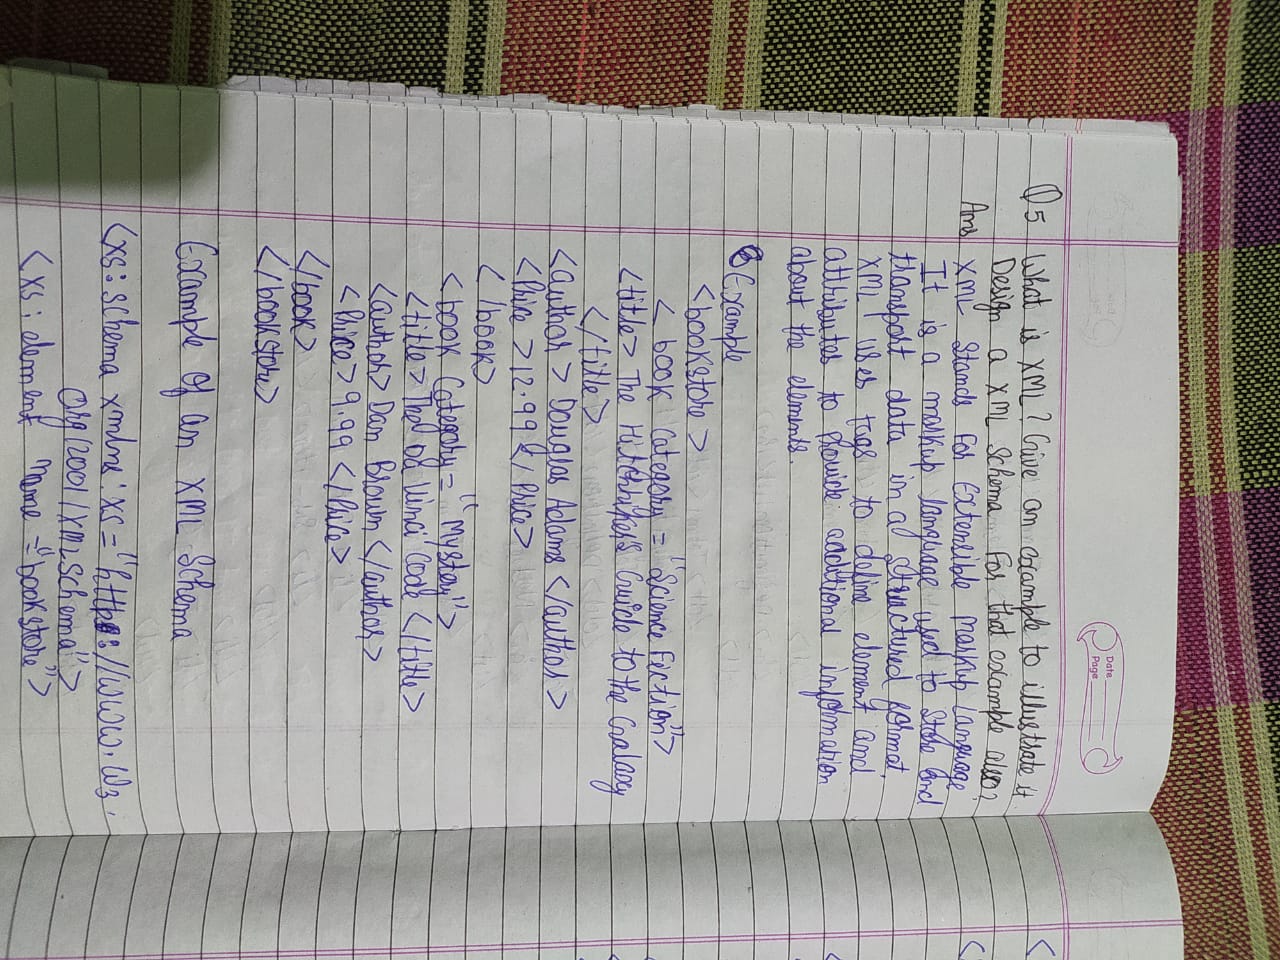 Date
Page
Q5 What is XML? Give an example to illustrate it
Design a XML Schema For that example also?
Ans XML Stands For Extensible Markup Language
It is a markup language used to Store and
transport data in a structured format.
XML uses tags to define element and
attributes to provide additional information
about the elements.
Example
<bookstore>
< book Category = "Science Fiction">
<title> The Hitchhiker's Guide to the Galaxy
</title>
<author> Douglas Adams </author>
<Price >12.99 </ Price>
</book>
<book Category = "Mystery">
<title> The Da Vinci Code </title>
<author> Dan Brown </author>
<Price> 9.99 </Price>
</book>
</bookstore>
Example Of an XML Schema
<xs: schema xmlns: xs = "http://www.w3.
org/2001/XMLSchema">
<xs: element name = "bookstore">